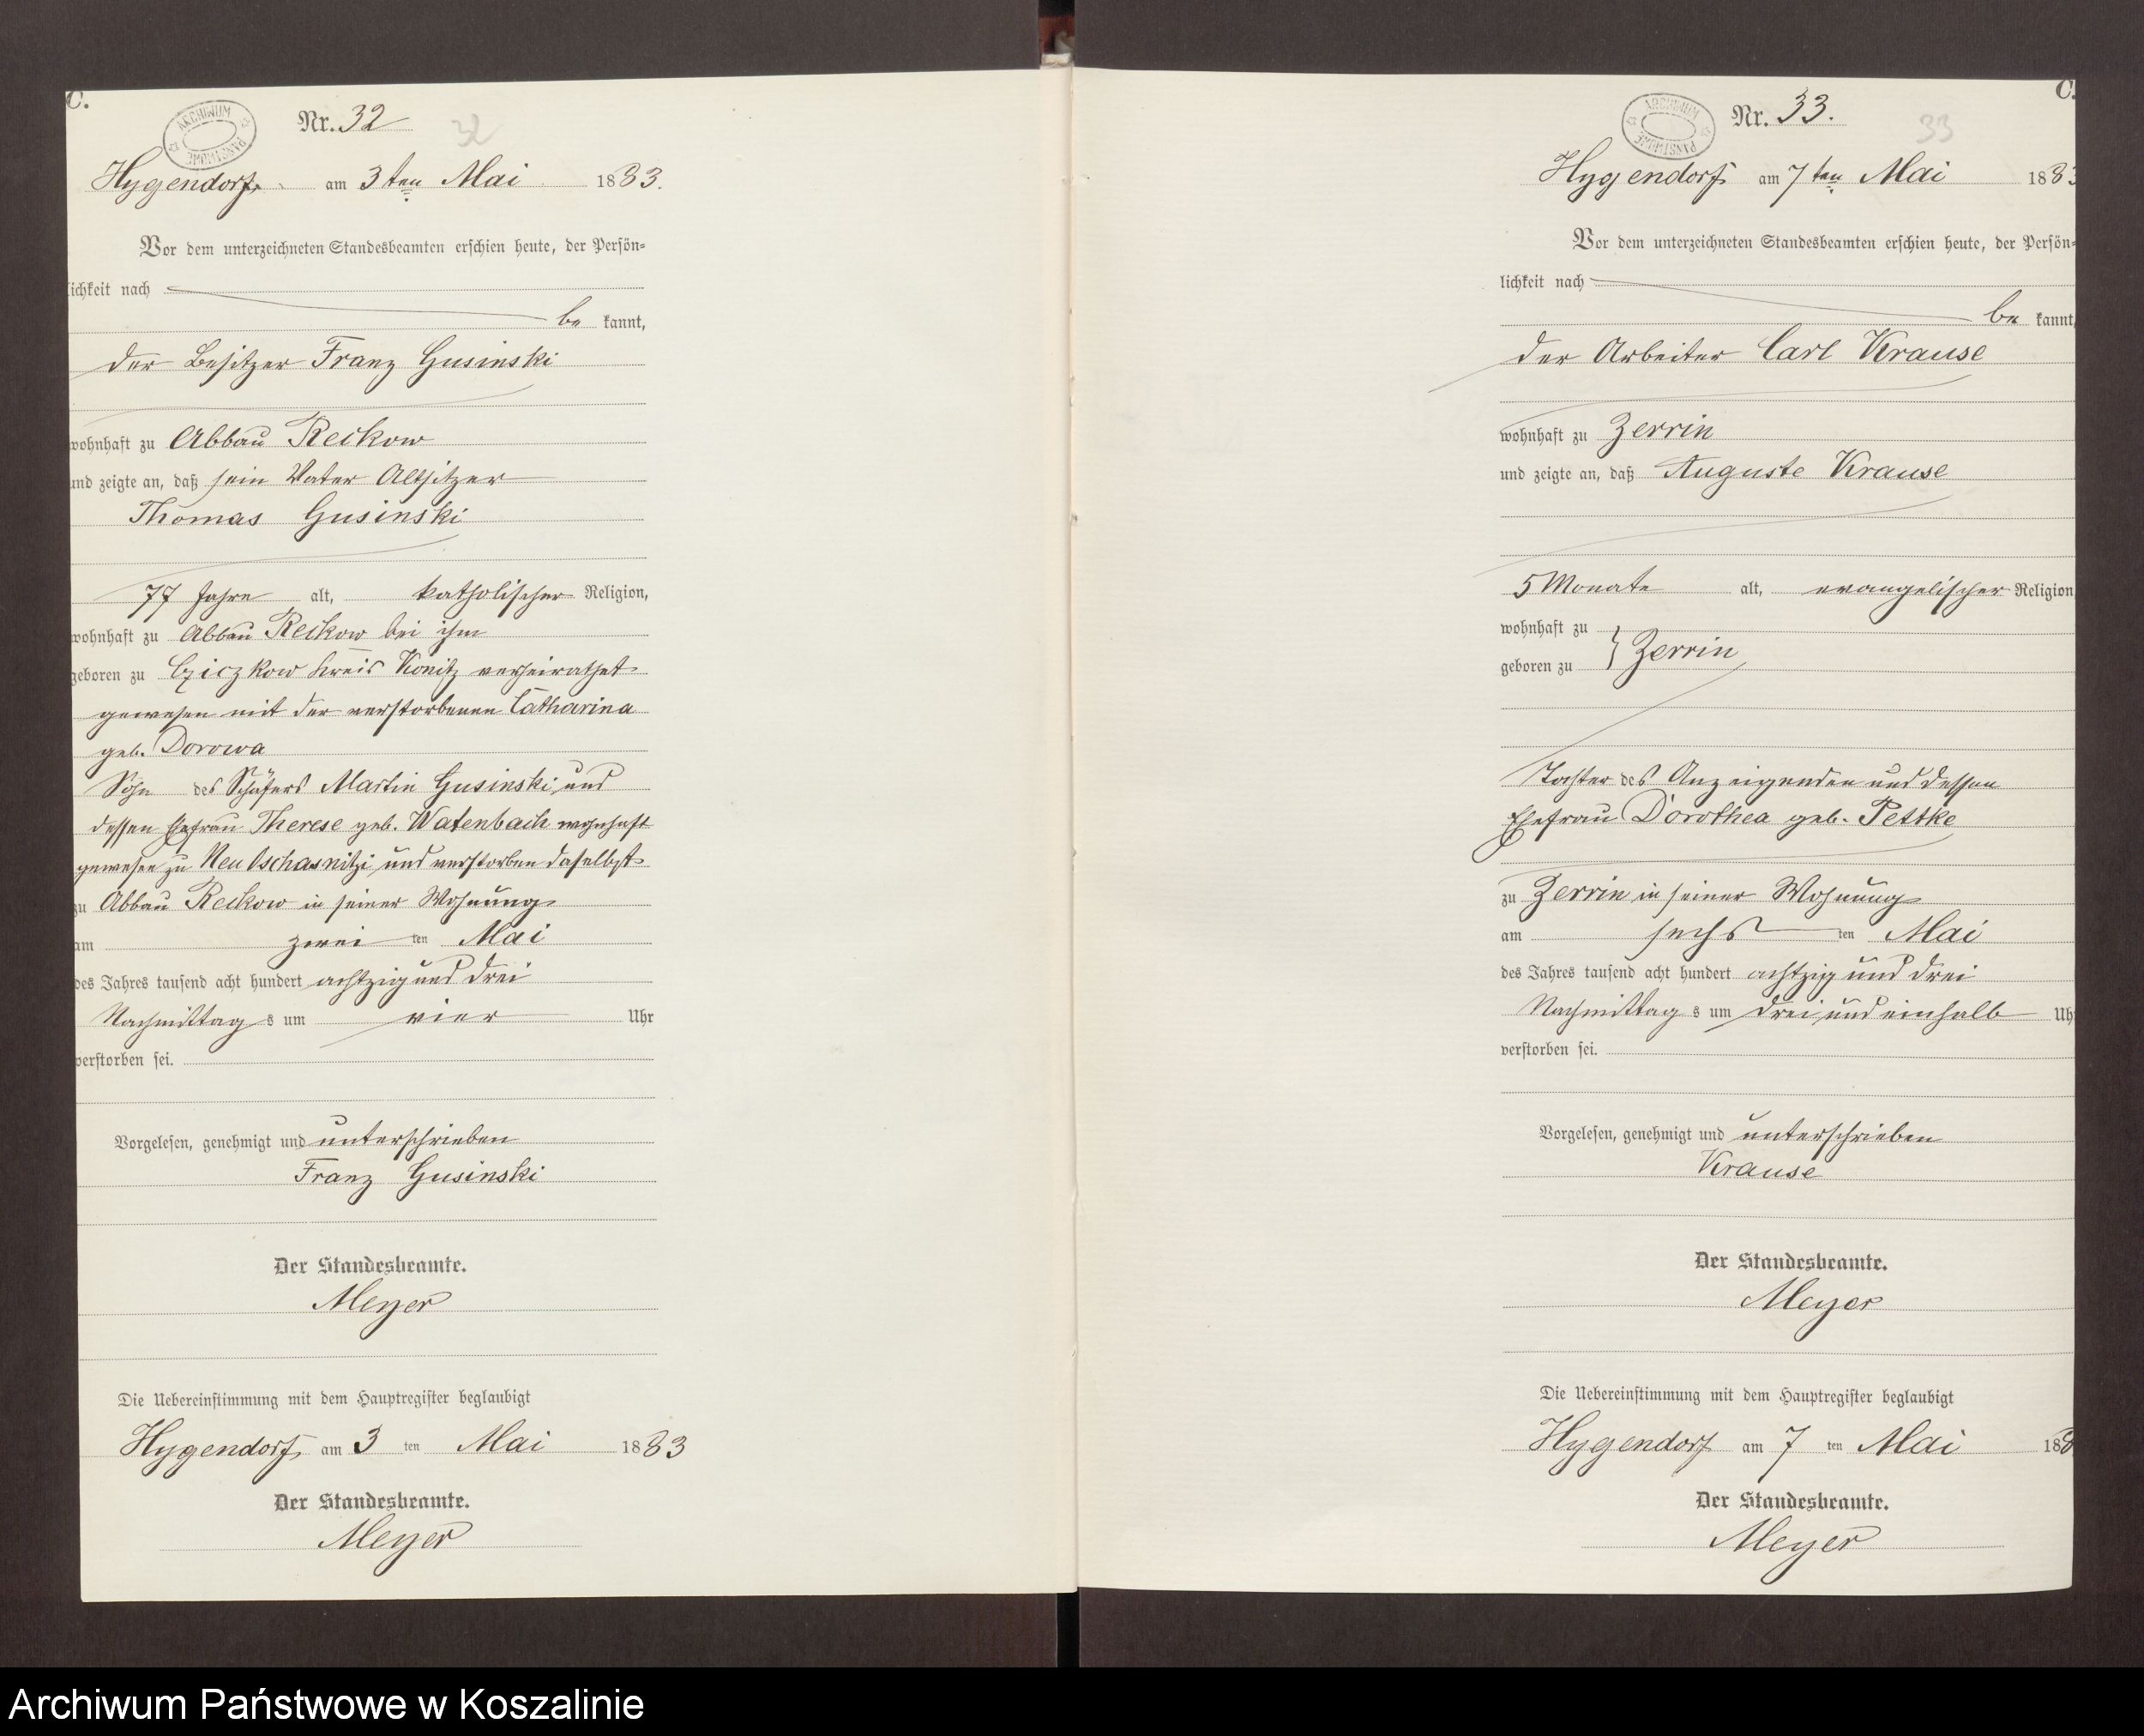 C.
ARCHIWUM PAŃSTWOWE
Nr. 32
32
Hygendorf am 3ten Mai 1883.
Vor dem unterzeichneten Standesbeamten erschien heute, der Persön-
lichkeit nach
be kannt,
der Besitzer Franz Gusinski
wohnhaft zu Abbau Reckow
und zeigte an, daß sein Vater Altsitzer
Thomas Gusinski
77 Jahre alt, katholischer Religion,
wohnhaft zu Abbau Reckow bei ihm
geboren zu Cziczkow Kreis Konitz verheirathet
gewesen mit der verstorbenen Catharina
geb. Dorowa
Sohn des Schäfers Martin Gusinski und
dessen Ehefrau Therese geb. Watenbach wohnhaft
gewesen zu Neu und verstorben daselbst
zu Abbau Reckow in seiner Wohnung
am zwei ten Mai
des Jahres tausend acht hundert achtzig und drei
Nachmittag s um vier Uhr
verstorben sei.
Vorgelesen, genehmigt und unterschrieben
Franz Gusinski
Der Standesbeamte.
Meyer
Die Uebereinstimmung mit dem Hauptregister beglaubigt
Hygendorf am 3 ten Mai 1883
Der Standesbeamte.
Meyer
C.
ARCHIWUM PAŃSTWOWE
Nr. 33.
33
Hygendorf am 7ten Mai 1883
Vor dem unterzeichneten Standesbeamten erschien heute, der Persön-
lichkeit nach
be kannt,
der Arbeiter Carl Krause
wohnhaft zu Zerrin
und zeigte an, daß Auguste Krause
5 Monate alt, evangelischer Religion
wohnhaft zu
geboren zu } Zerrin
Tochter des Anzeigenden und dessen
Ehefrau Dorothea geb. Pettke
zu Zerrin in seiner Wohnung
am sechs ten Mai
des Jahres tausend acht hundert achtzig und drei
Nachmittag s um drei und einhalb Uhr
verstorben sei.
Vorgelesen, genehmigt und unterschrieben
Krause
Der Standesbeamte.
Meyer
Die Uebereinstimmung mit dem Hauptregister beglaubigt
Hygendorf am 7 ten Mai 188
Der Standesbeamte.
Meyer
Archiwum Państwowe w Koszalinie